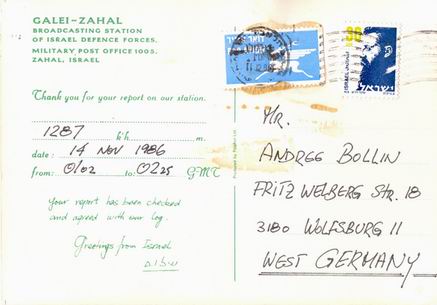 GALEI-ZAHAL
BROADCASTING STATION
OF ISRAEL DEFENCE FORCES,
MILITARY POST OFFICE 1005,
ZAHAL, ISRAEL
Thank you for your report on our station.
1287 kh m.
date: 14 NOV 1986
from: 0102 to: 0225 GMT
Your report has been checked
and agreed with our log.
Greetings from Israel
דואר אויר
ISRAEL ישראל
Mr.
ANDREE BOLLIN
FRITZ WELBERG Str. 18
3180 WOLFSBURG 11
WEST GERMANY